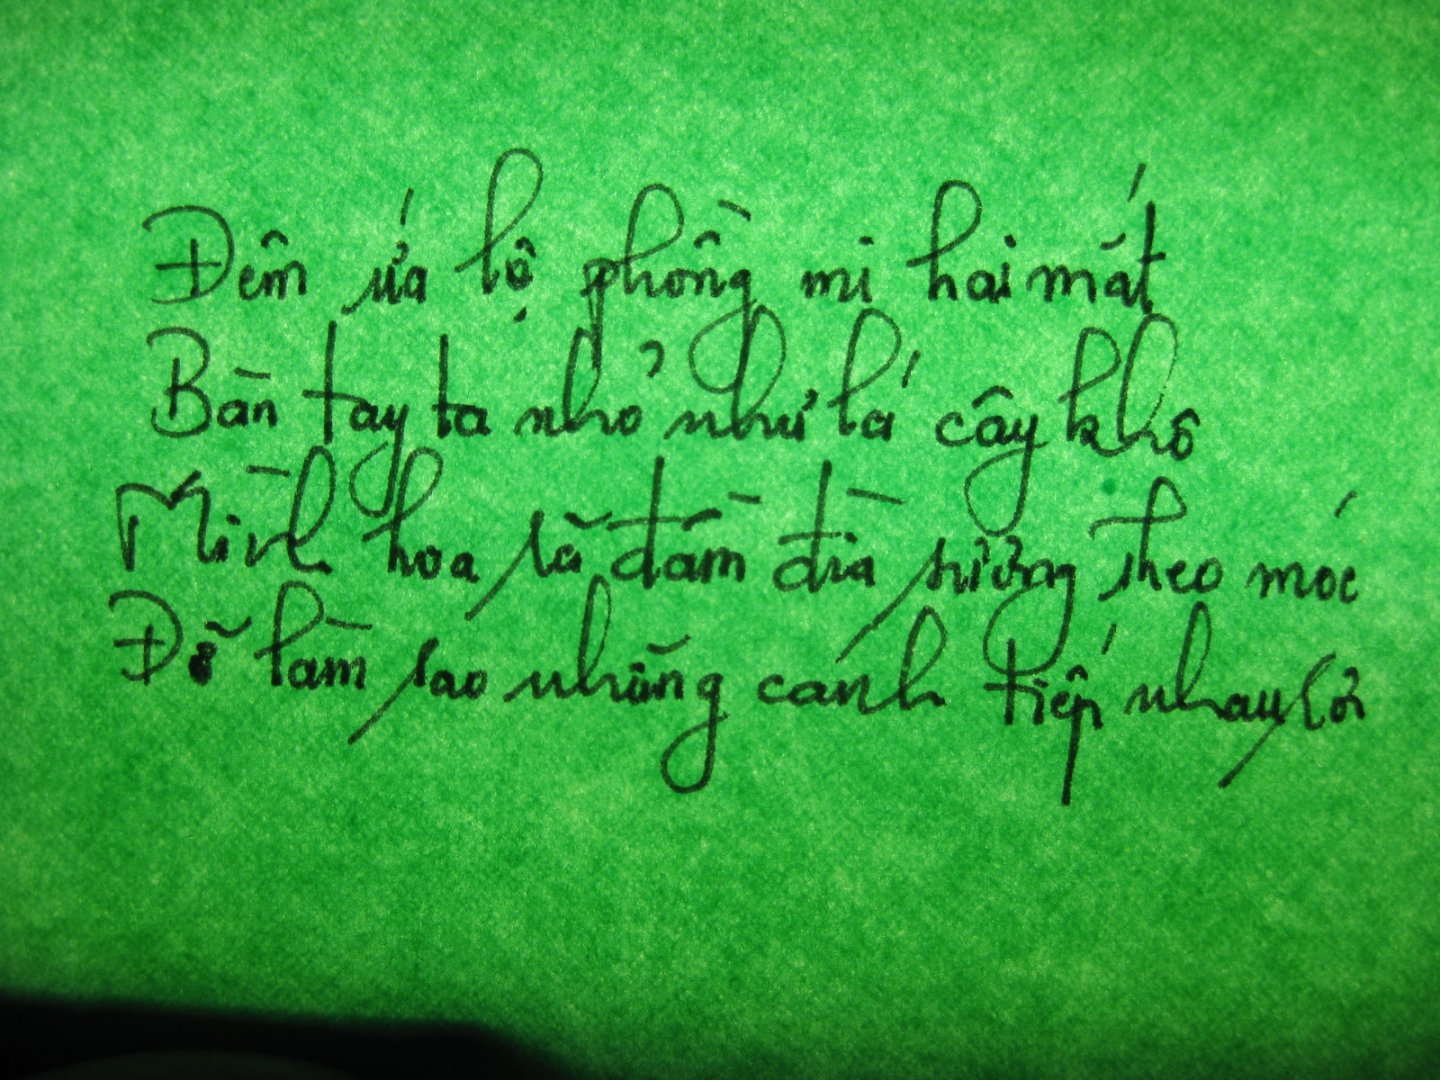 Đêm ứa lộ phồng mi hai mắt
Bàn tay ta nhỏ như lá cây khô
Mình hoa lã đầm đìa sương theo móc
Để làm sao những cánh tiếp nhau rời